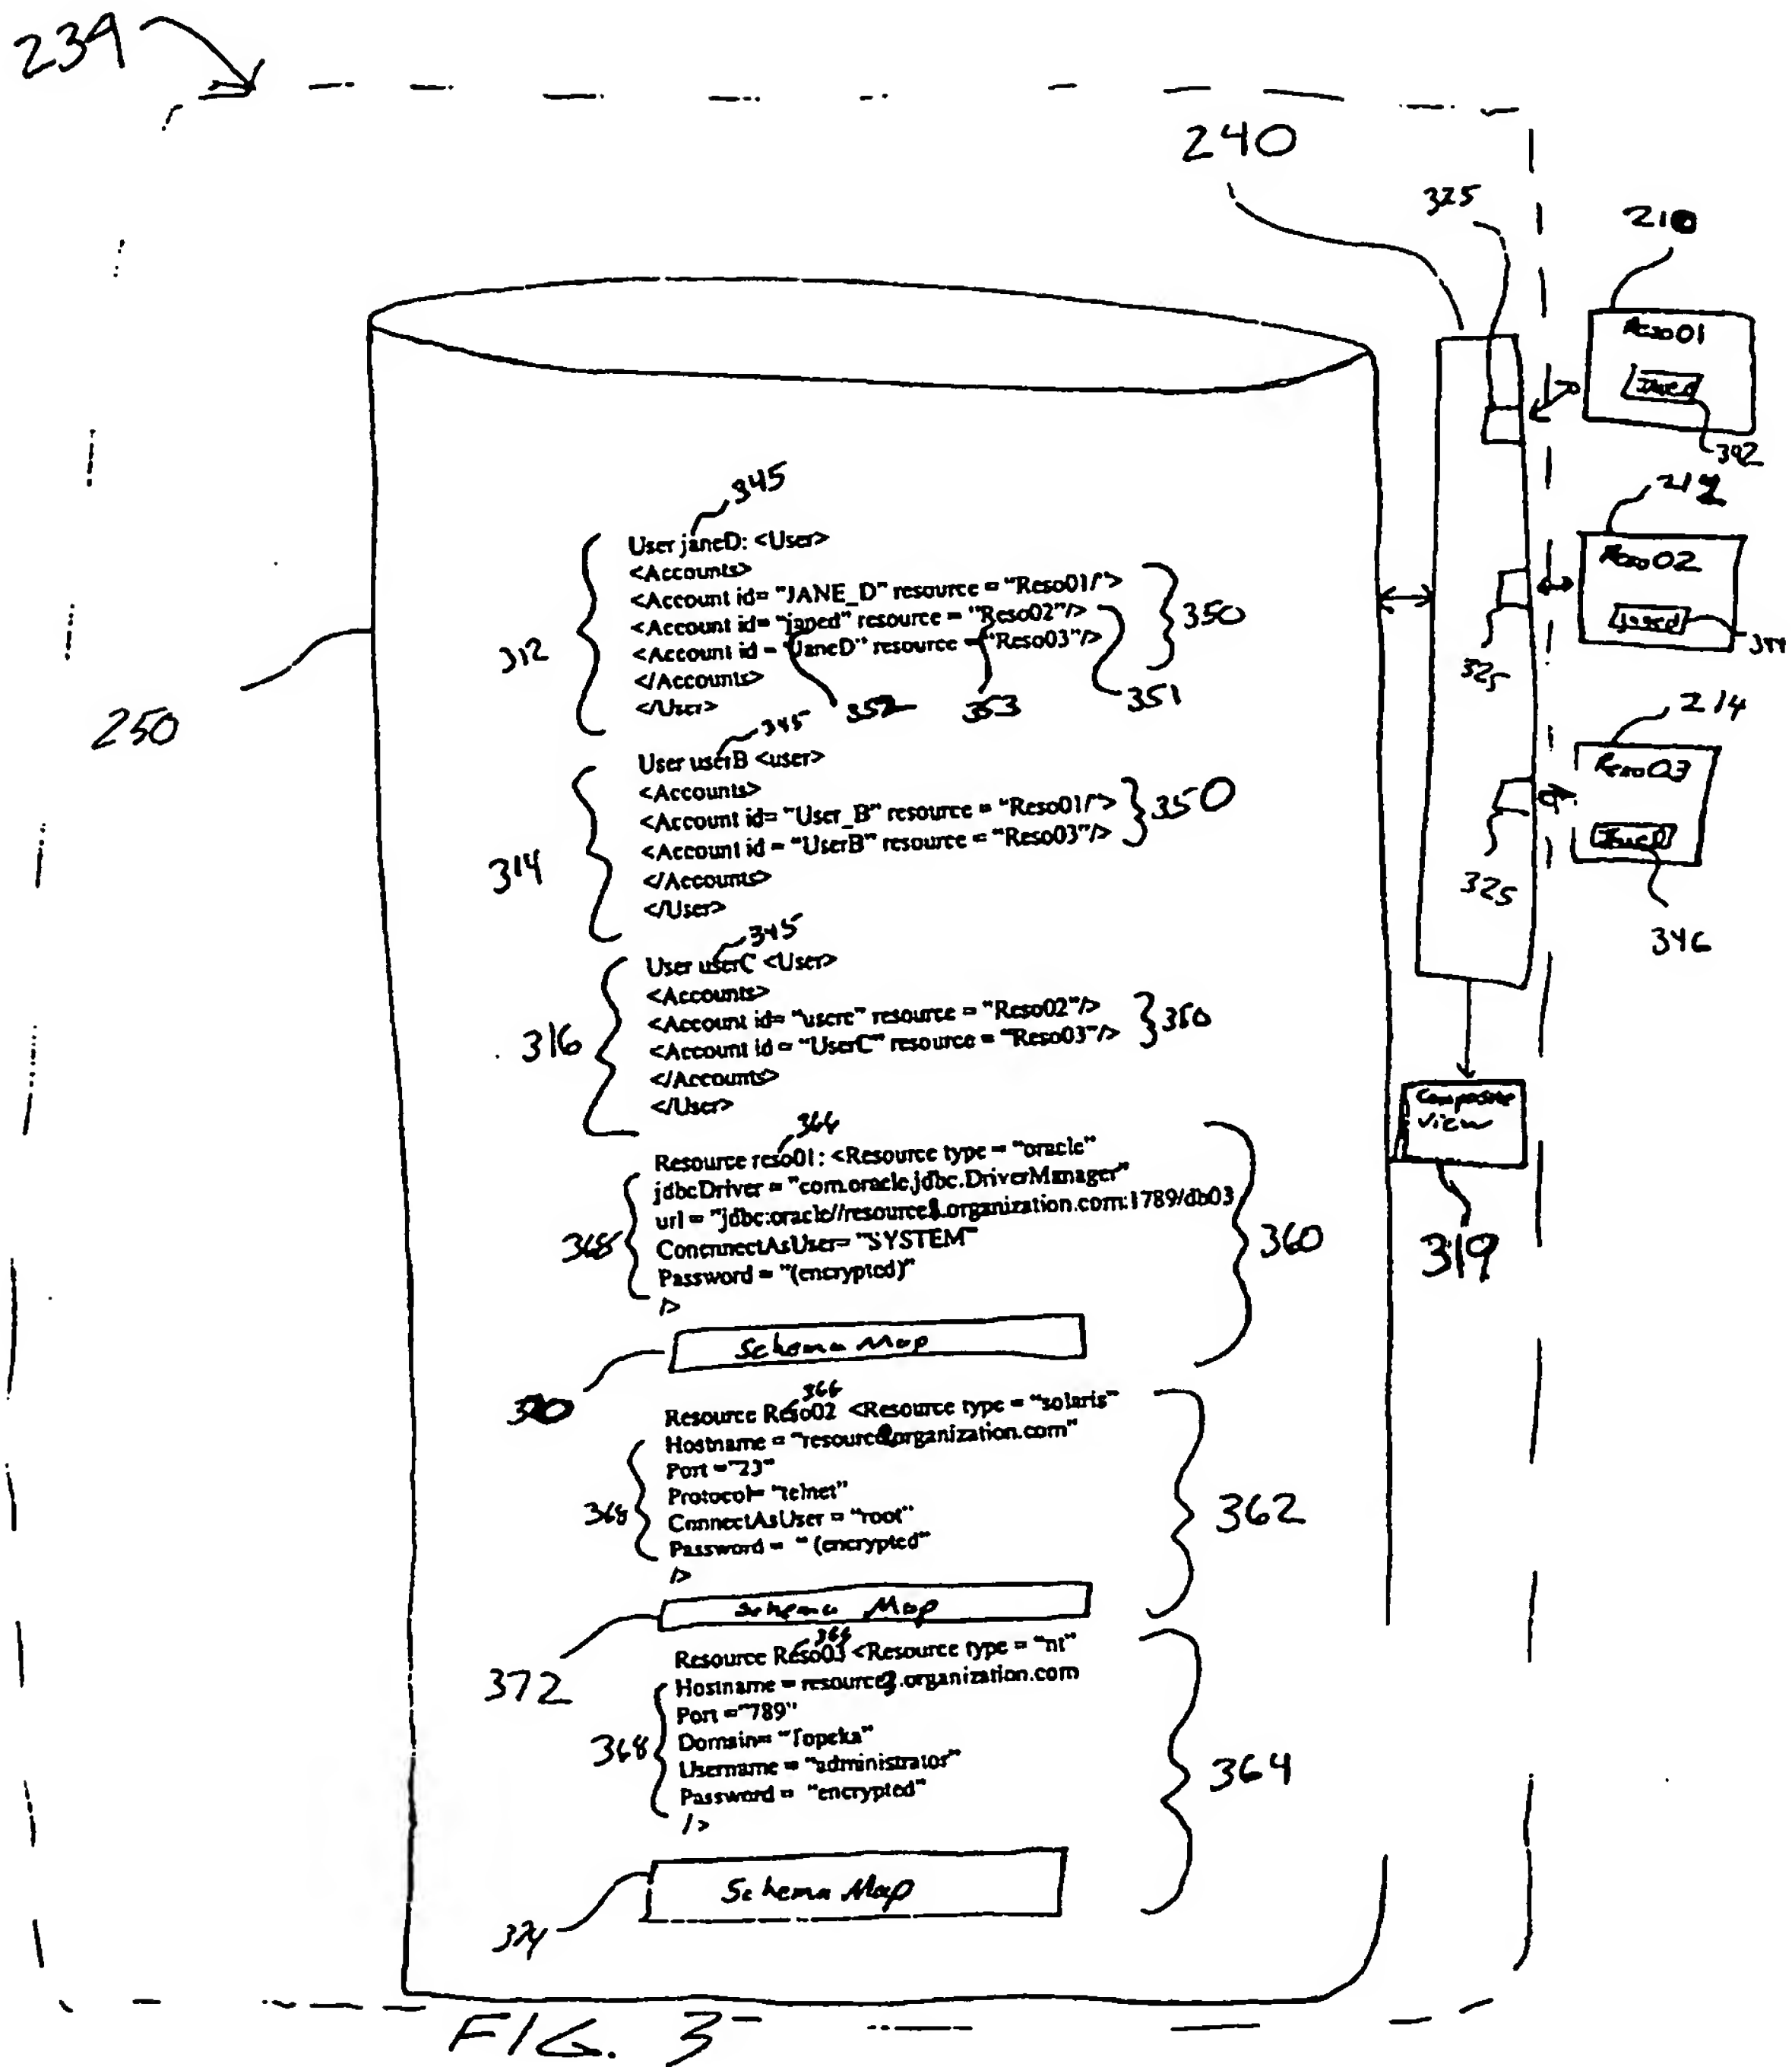 239
240
325
210
Reso01
342
212
Reso02
janed
344
325
214
Reso03
JaneD
325
346
250
345
312
User janeD: <User>
<Accounts>
<Account id= "JANE_D" resource = "Reso01/">
<Account id= "janed" resource = "Reso02"/>
<Account id = "JaneD" resource = "Reso03"/>
</Accounts>
</User>
350
352
353
351
345
314
User userB <user>
<Accounts>
<Account id= "User_B" resource = "Reso01/">
<Account id = "UserB" resource = "Reso03"/>
</Accounts>
</User>
350
345
316
User userC <User>
<Accounts>
<Account id= "userc" resource = "Reso02"/>
<Account id = "UserC" resource = "Reso03"/>
</Accounts>
</User>
350
Composite
view
319
366
Resource reso01: <Resource type = "oracle"
jdbcDriver = "com.oracle.jdbc.DriverManager"
url = "jdbc:oracle//resource1.organization.com:1789/db03
ConennectAsUser= "SYSTEM"
Password = "(encrypted)"
/>
368
360
Schema Map
370
366
Resource Reso02 <Resource type = "solaris"
Hostname = "resource2organization.com"
Port ="23"
Protocol= "telnet"
ConnectAsUser = "root"
Password = " (encrypted"
/>
368
362
Schema Map
372
366
Resource Reso03 <Resource type = "nt"
Hostname = resource3.organization.com
Port ="789"
Domain= "Topeka"
Username = "administrator"
Password = "encrypted"
/>
368
364
Schema Map
374
FIG. 3